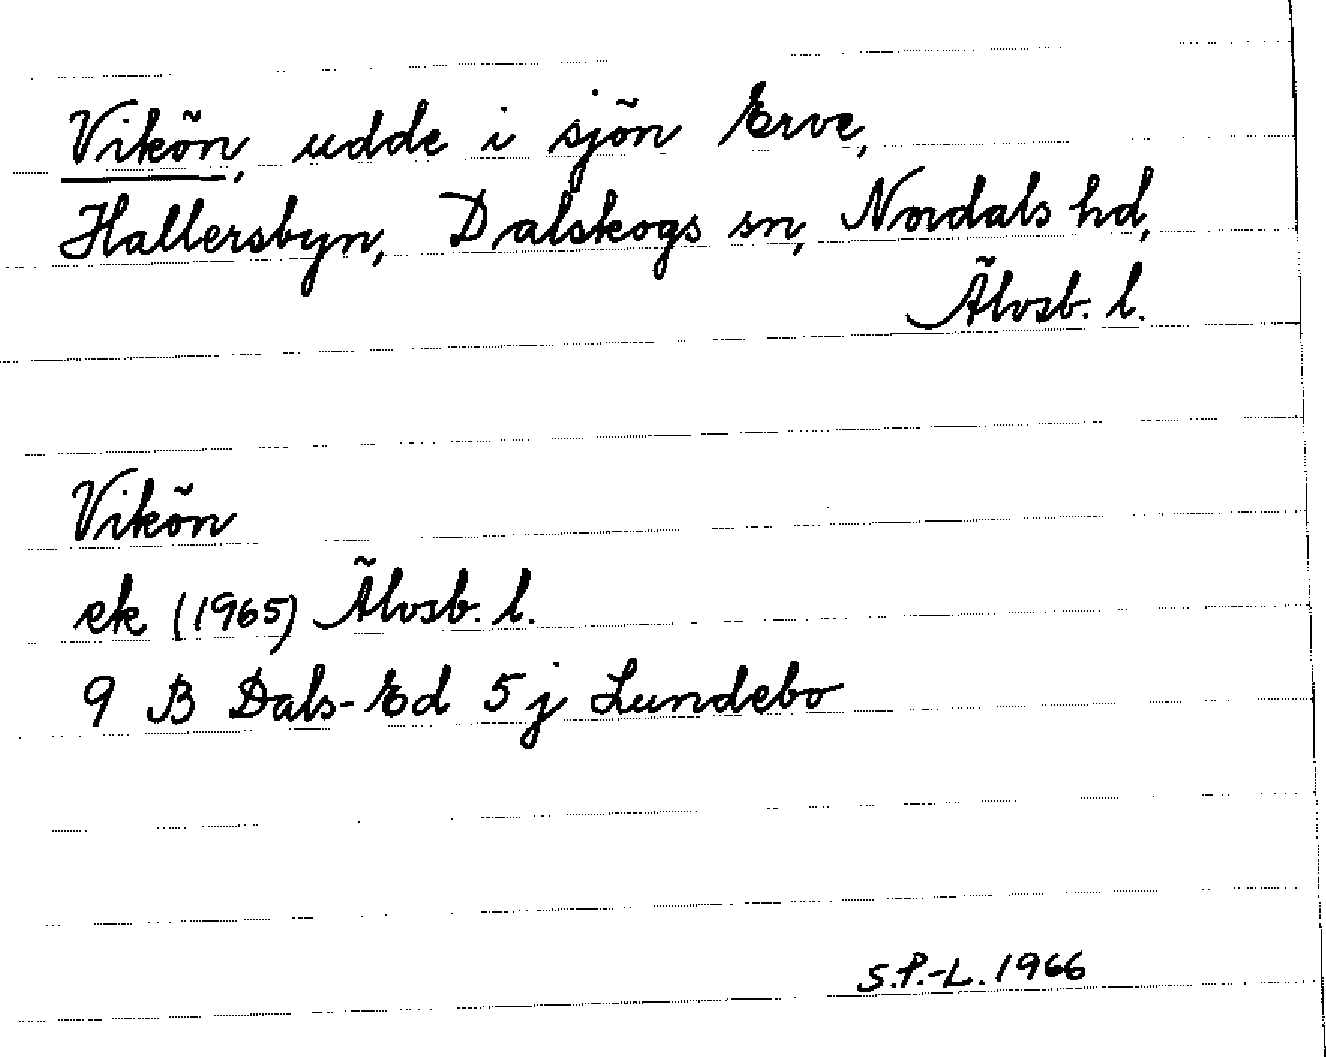 Vikön, udde i sjön Erve,
Hallersbyn, Dalskogs sn, Nordals hd,
Älvsb. l.
Vikön
ek (1965) Älvsb. l.
9 B Dals-Ed 5 j Lundebo
S.P.-L. 1966